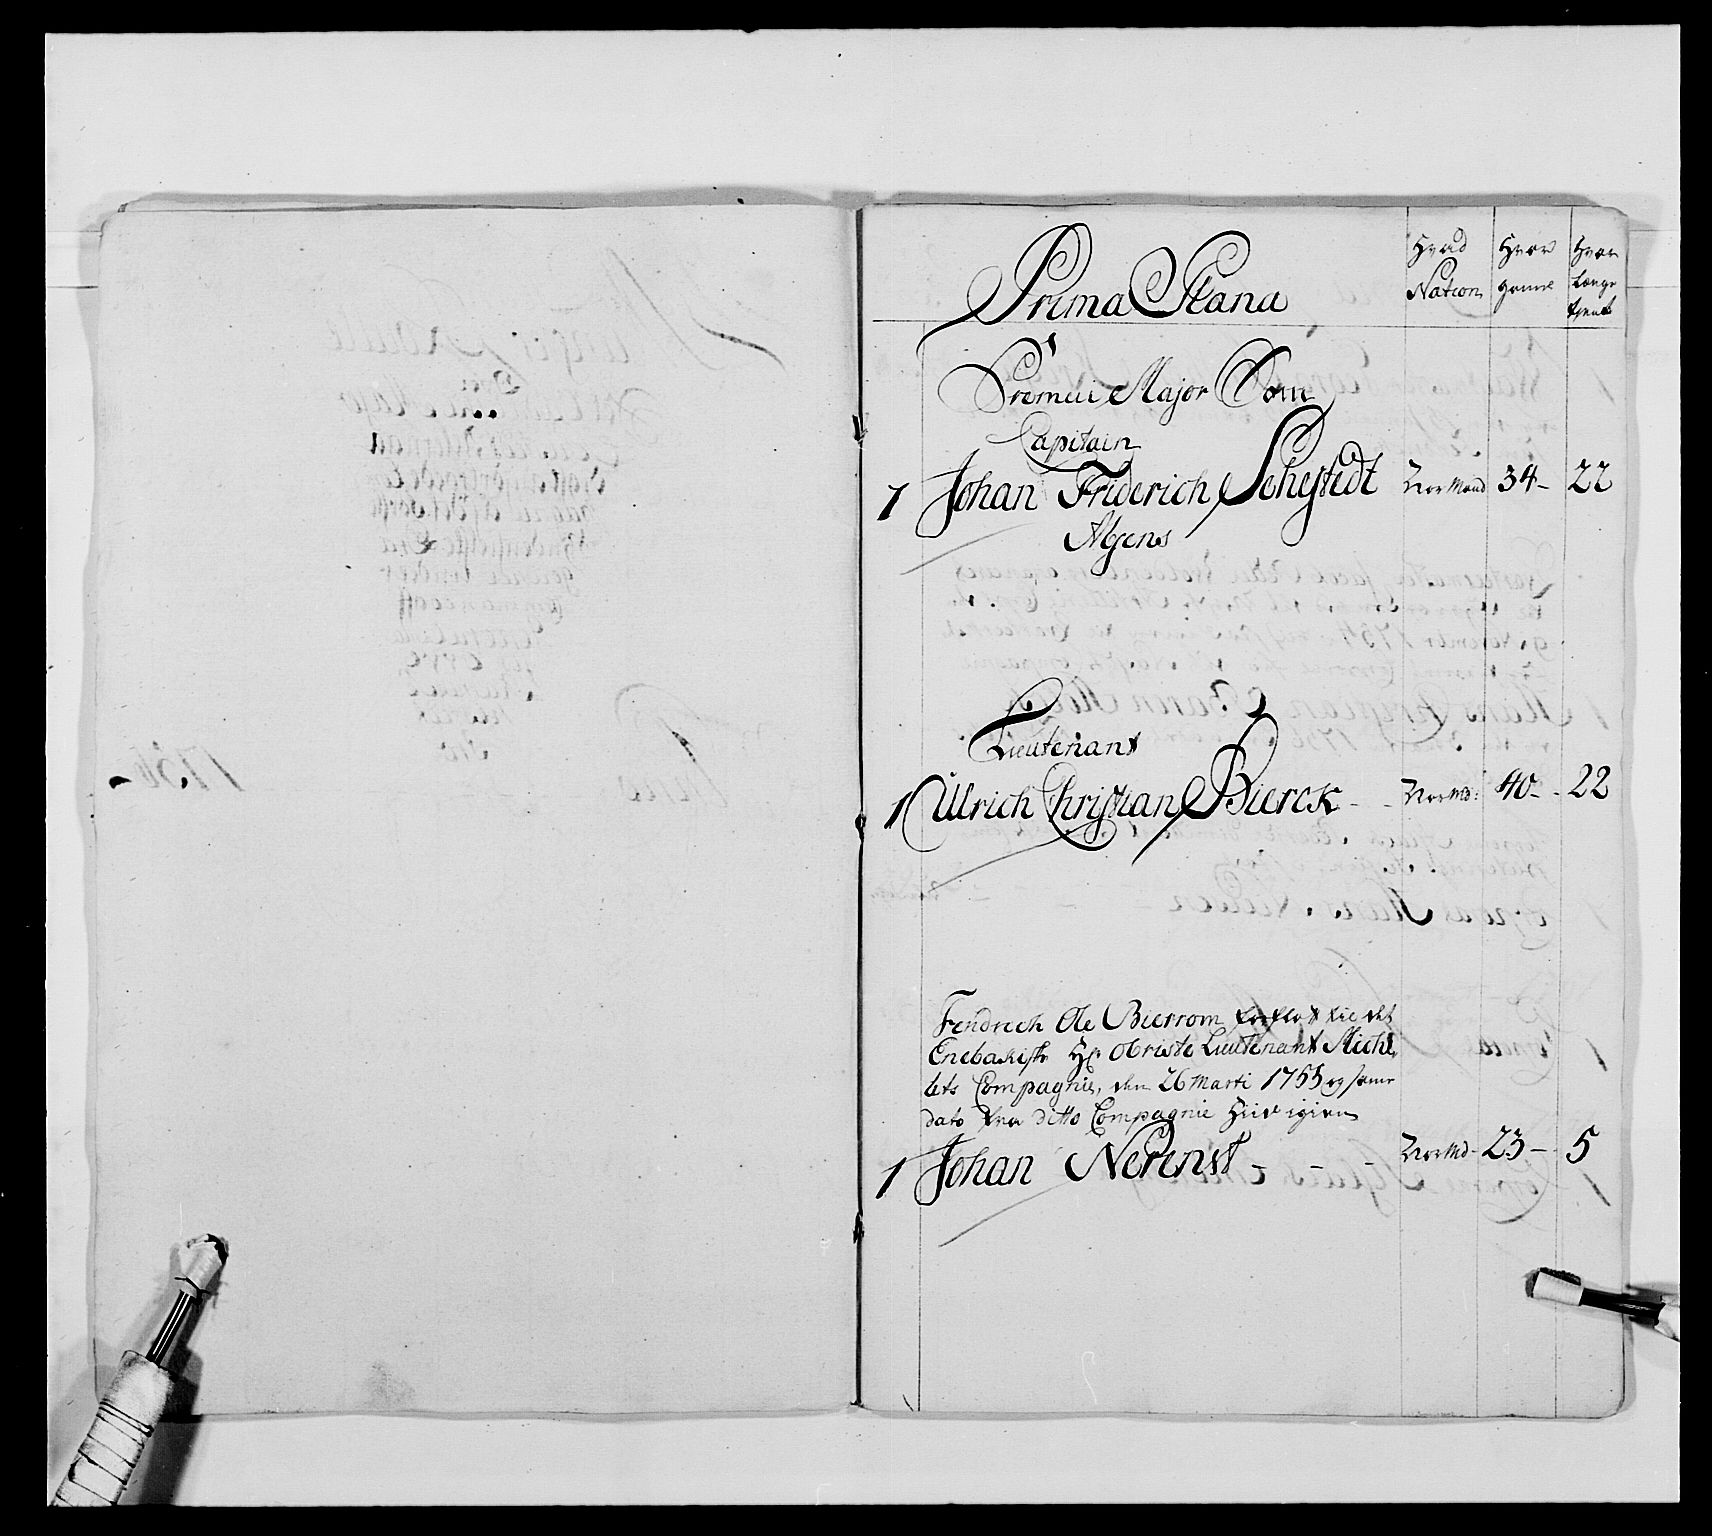 Prima Plana
Hvad Nation
Hvor gamel
Hvor Længe tient
Premiie Major Som
Capitain
1 Johan Friderich Sehestedt Nor Mand 34 - 22
Agens
Lieutenant
1 Ulrich Christian Bierck - - Nor Md: 40 - - 22
Fendrich Ole Bierrom forflót til det
Enebakiske Hr Obriste Lieutenant Michl,
lets Compagnie, den 26 Marti 1755 og samme
dato fra ditto Compagnie Hiid igien
1 Johan Nerenst - - - Nor Md - 23 - 5